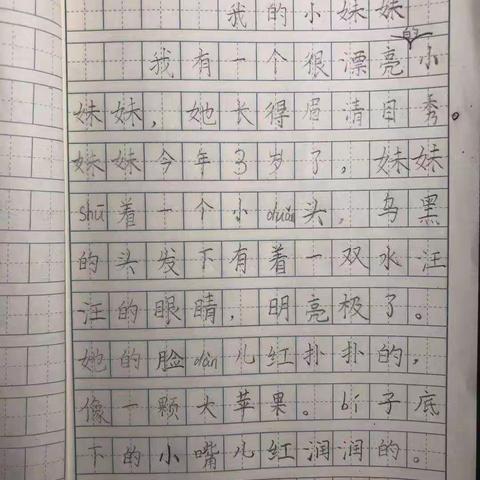 我的小妹妹
我有一个很漂亮的小
妹妹，她长得眉清目秀。
妹妹今年3岁了，妹妹
shū着一个小duǎn头，乌黑
的头发下有着一双水汪
汪的眼睛，明亮极了。
她的脸dàn儿红扑扑的，
像一颗大苹果。bí子底
下的小嘴儿红润润的。